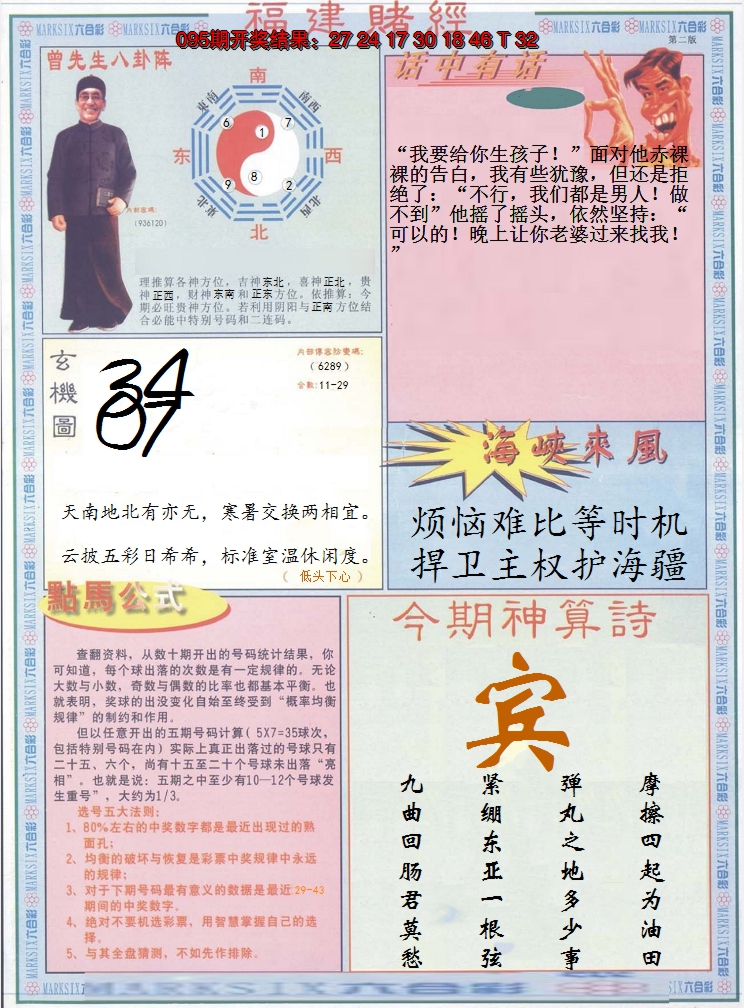 福建賭經
095期开奖结果：27 24 17 30 18 46 T 32
第二版
曾先生八卦阵
南
東南
南西
东
西
東北
北西
北
6
1
7
9
8
2
内部密碼：
（936120）
理推算各神方位，吉神东北，喜神正北，贵
神正西，财神东南和正东方位。依推算：今
期必旺贵神方位。若利用阴阳与正南方位结
合必能中特别号码和二连码。
话中有话
“我要给你生孩子！”面对他赤裸
裸的告白，我有些犹豫，但还是拒
绝了：“不行，我们都是男人！做
不到”他摇了摇头，依然坚持：“
可以的！晚上让你老婆过来找我！
”
玄機圖
34
07
（6289）
合数:11-29
天南地北有亦无，寒暑交换两相宜。
云披五彩日希希，标准室温休闲度。
（ 低头下心 ）
海峽來風
烦恼难比等时机
捍卫主权护海疆
點馬公式
查翻资料，从数十期开出的号码统计结果，你
可知道，每个球出落的次数是有一定规律的。无论
大数与小数，奇数与偶数的比率也都基本平衡。也
就表明，奖球的出没变化自始至终受到“概率均衡
规律”的制约和作用。
但以任意开出的五期号码计算（5X7=35球次，
包括特别号码在内）实际上真正出落过的号球只有
二十五、六个，尚有十五至二十个号球未出落“亮
相”。也就是说：五期之中至少有10—12个号球发
生重号”，大约为1/3。
选号五大法则：
1、80%左右的中奖数字都是最近出现过的熟
面孔；
2、均衡的破坏与恢复是彩票中奖规律中永远
的规律；
3、对于下期号码最有意义的数据是最近29-43
期间的中奖数字。
4、绝对不要机选彩票，用智慧掌握自己的选
择。
5、与其全盘猜测，不如先作排除。
今期神算詩
宾
摩擦四起为油田
弹丸之地多少事
紧绷东亚一根弦
九曲回肠君莫愁
MARKSIX六合彩